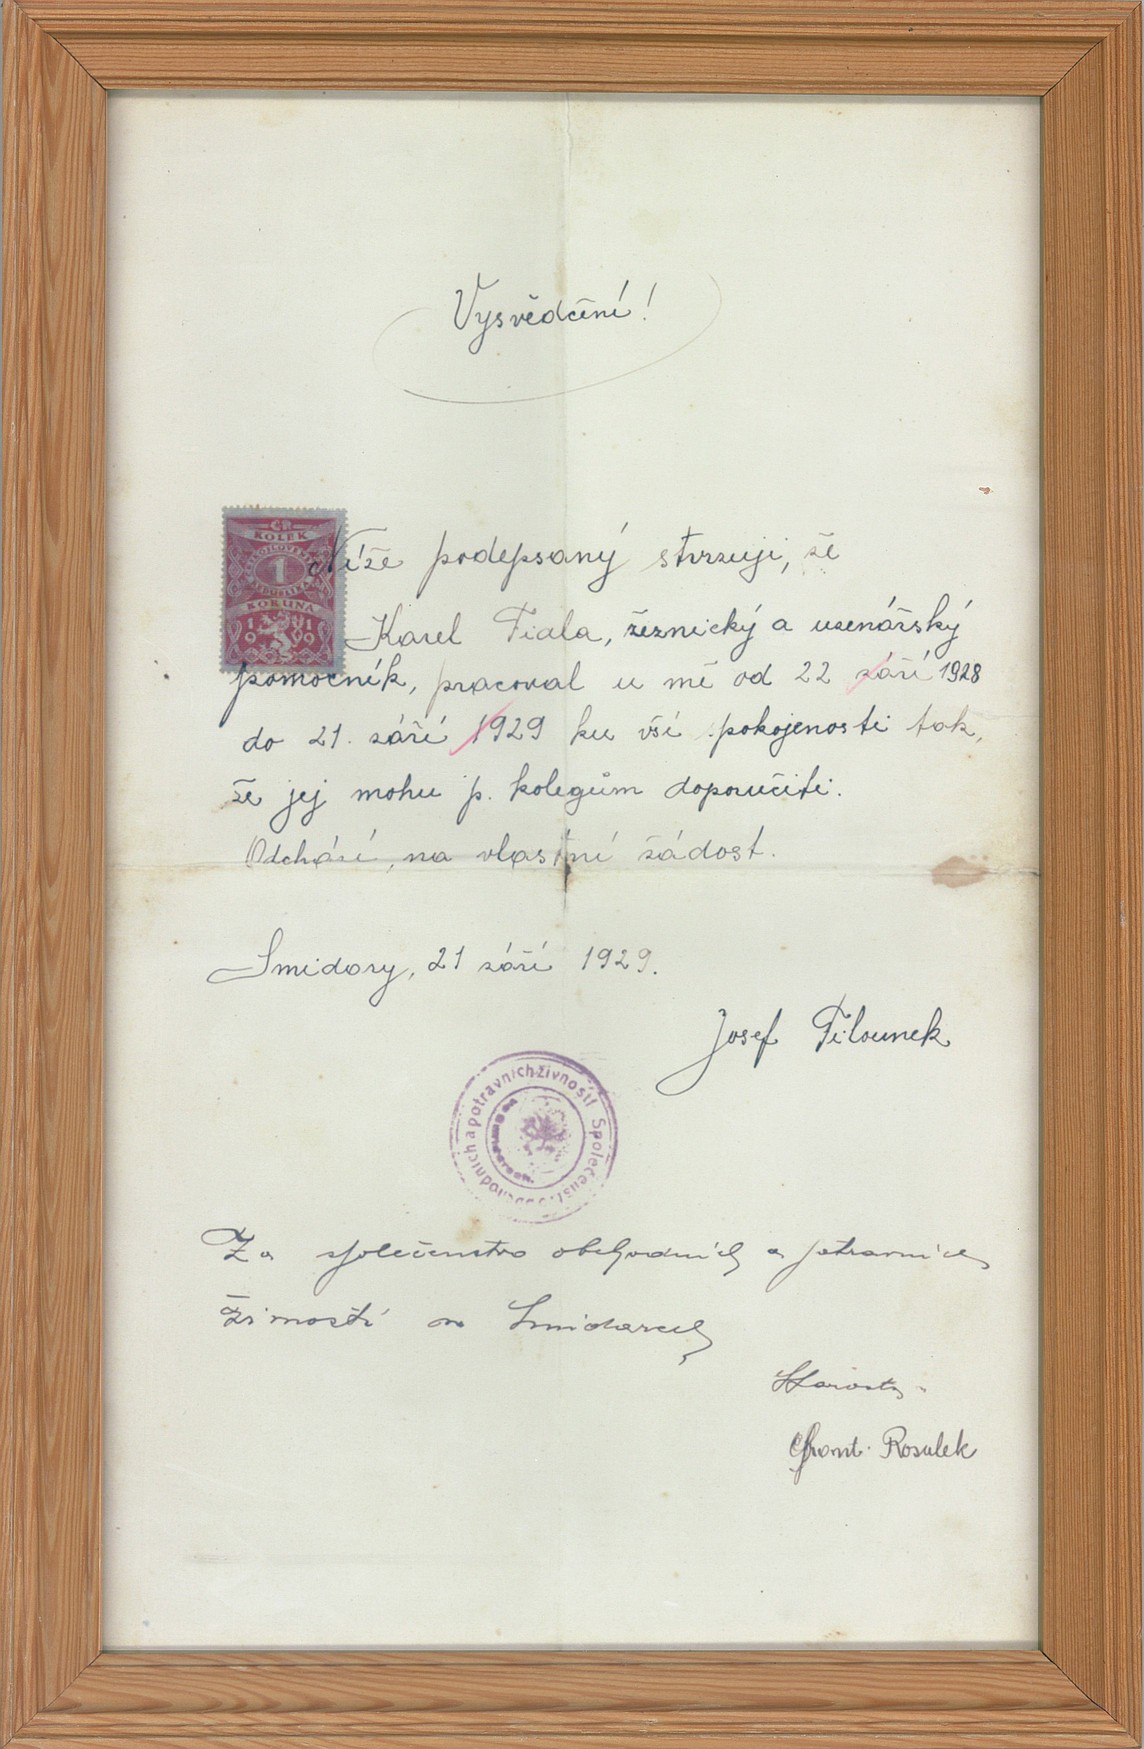 Vysvědčení!
ČR
KOLEK
1
KORUNA
1919
Níže podepsaný stvrzuji, že
Karel Fiala, řeznický a uzenářský
pomocník, pracoval u mě od 22 září 1928
do 21. září 1929 ku vší spokojenosti tak,
že jej mohu p. kolegům doporučiti.
Odchází, na vlastní žádost.
Smidary, 21 září 1929.
Josef Filounek
Společenst. obchodních a potravních živností
Za společenstvo obchodních a potravních
živností ve Smidarech
Starosta
Frant. Rosulek